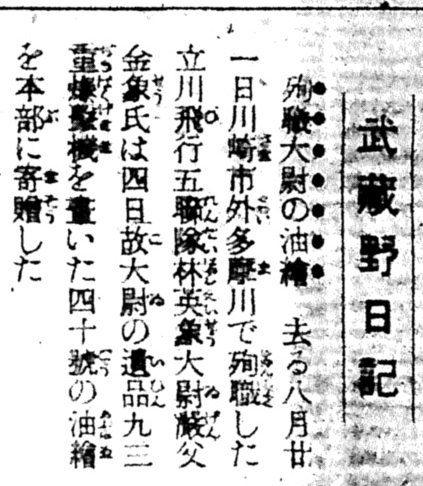 武蔵野日記
殉職大尉の油繪 去る八月廿
一日川崎市外多摩川で殉職した
立川飛行五聯隊林英象大尉厳父
金象氏は四日故大尉の遺品九三
重爆撃機を畫いた四十號の油繪
を本部に寄贈した